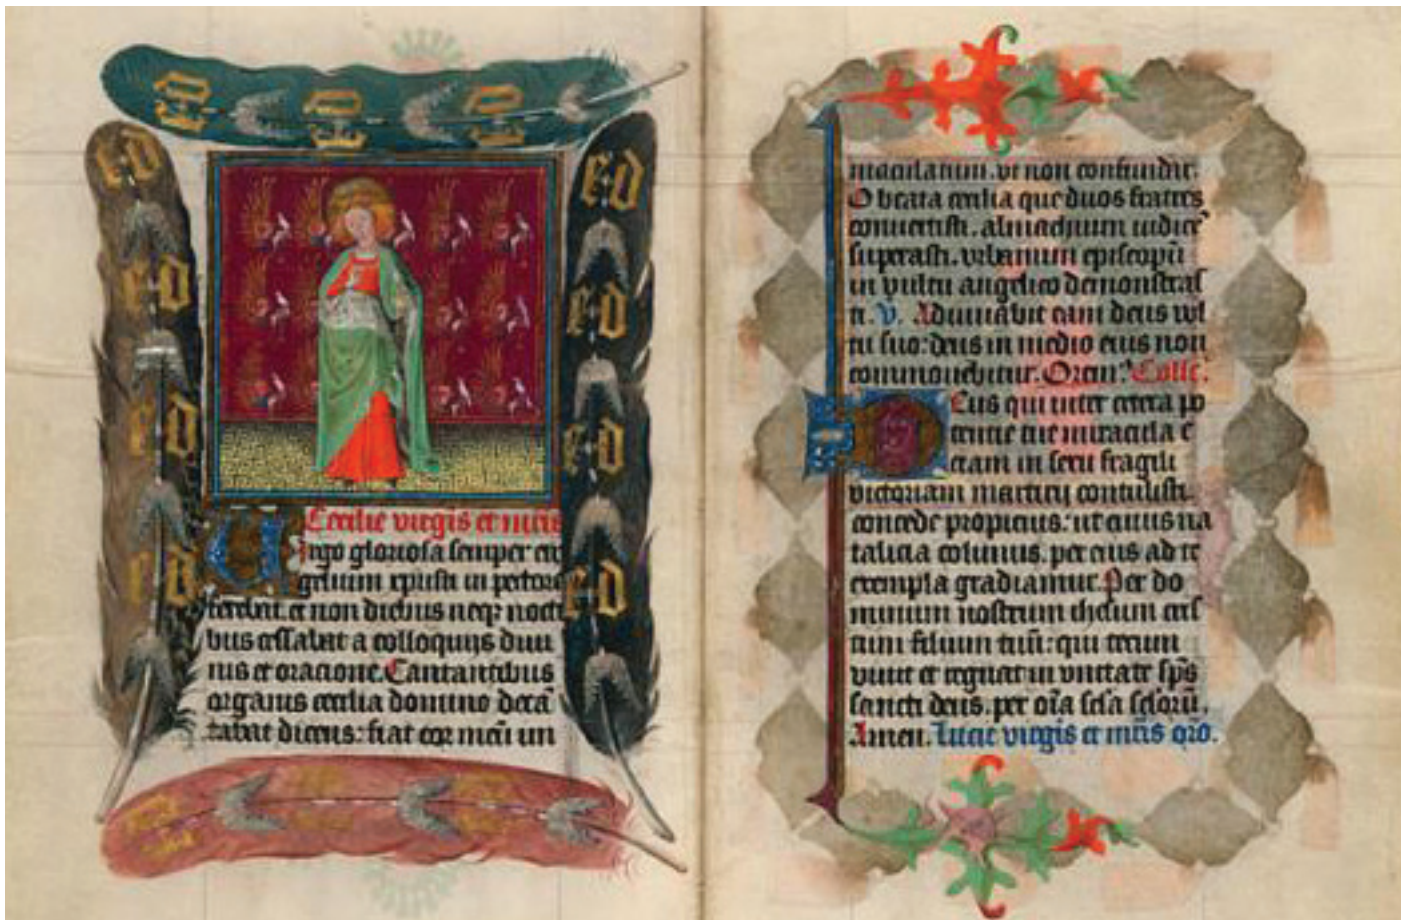 e·d
e·d
e·d
e·d
e·d
e·d
e·d
e·d
Cecilie virgis et mris
Virgo gloriosa semper ev
gelium xpisti in pectore
gerebat. et non diebus neqꝫ nocti
bus cessabat a colloquijs diui
nis et oracione. Cantantibus
organis cecilia domino decā
tabat dicens: fiat cor meū im
maculatum. vt non confundar.
O beata cecilia que duos fratres
conuertisti. almachium iudicē
superasti. vrbanum episcopū
in vultu angelico demonstras
ti. V. Adiuuabit eam deus vul
tu suo: deus in medio eius non
commouebitur. Orem⁹ Collc.
Deus qui inter cetera po
tencie tue miracula e
ciam in sexu fragili
victoriam martirij contulisti.
concede propicius. ut cuius na
talicia colimus. per eius ad te
exempla gradiamur. Per do
minum nostrum ihesum cris
tum filium tuū: qui tecum
viuit et regnat in vnitate sp̄s
sancti deus. per oīa scl̄a scl̄orū.
Amen. Lucie virgis et mr̄is or̄o.